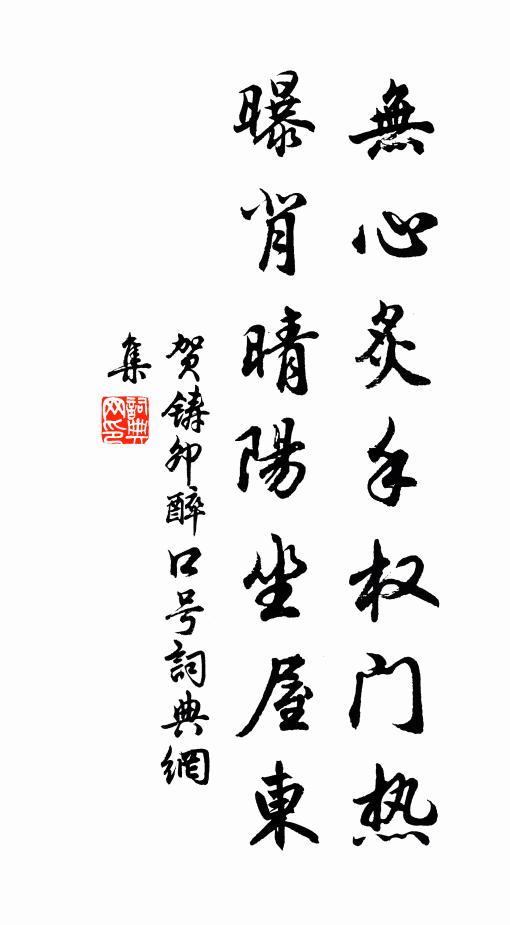 無心炙手权门热
曝背晴陽坐屋東
贺鑄卯醉口号詞典網
集
詞典
网印